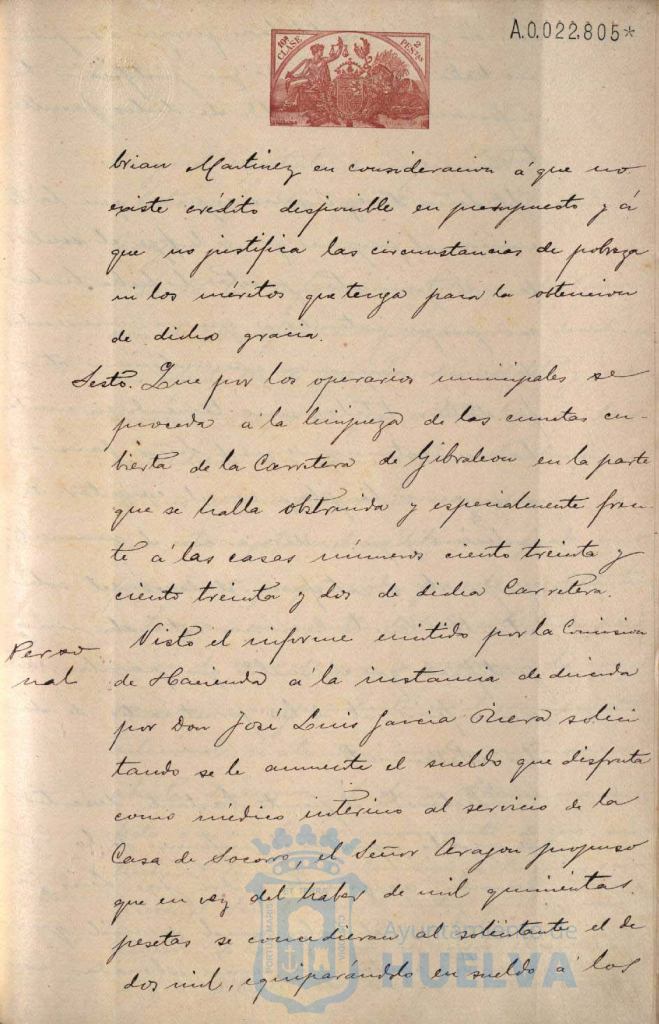 10ª CLASE 2 PESETAS
A.0.022.805*
brian Martinez en consideracion á que no
existe crédito disponible en presupuesto y á
que no justifica las circunstancias de pobreza
ni los méritos que tenga para la obtencion
de dicha gracia.
Sesto. Que por los operarios municipales se
proceda á la limpieza de las cunetas cu-
bierta de la Carretera de Gibraleon en la parte
que se halla obstruida y especialmente fren-
te á las casas números ciento treinta y
ciento treinta y dos de dicha Carretera.
Perso
nal
Visto el informe emitido por la Comision
de Hacienda á la instancia deducida
por Don José Luis Garcia Riera solici
tando se le aumente el sueldo que disfruta
como médico interino al servicio de la
Casa de Socorro, el Señor Aragon propuso
que en vez del haber de mil quinientas
pesetas se concedieran al solicitante el de
dos mil, equiparándolo en sueldo á los
Ayuntamiento de
HUELVA